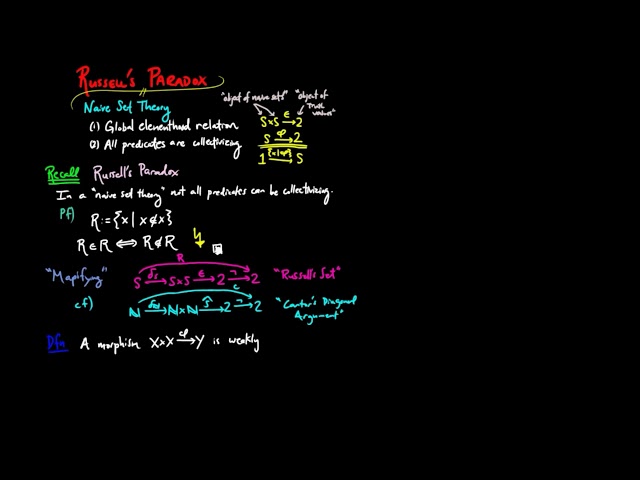 RUSSELL'S PARADOX
Naive Set Theory
(1) Global elementhood relation
(2) All predicates are collectivizing
"object of naive sets" "object of Truth values"
S×S —∈→ 2
S —φ→ 2
1 —{x|φ}→ S
Recall Russell's Paradox
In a "naive set theory" not all predicates can be collectivizing.
Pf) R:={x | x∉x}
R∈R ⟺ R∉R
R
"Mapifying" S —δs→ S×S —∈→ 2 —¬→ 2 "Russell's Set"
C
cf) ℕ —δℕ→ ℕ×ℕ —ŝ→ 2 —¬→ 2 "Cantor's Diagonal Argument"
Dfn A morphism X×X —φ→ Y is weakly